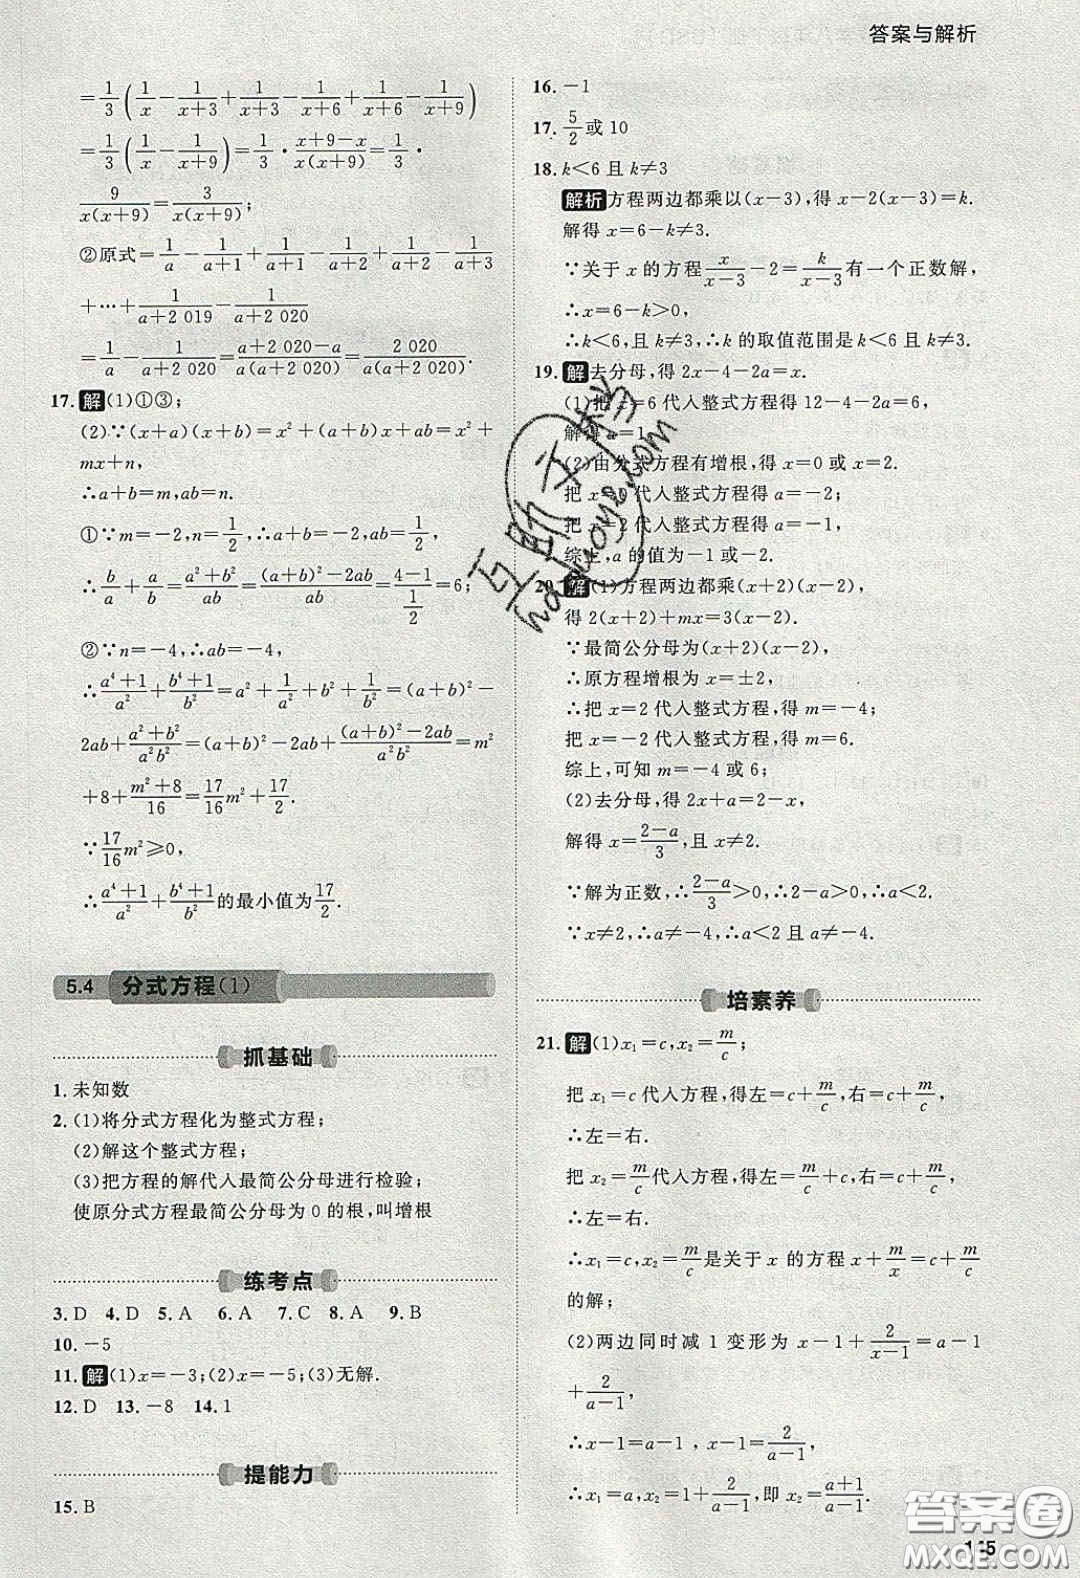 答案与解析
=1/3(1/x-1/(x+3)+1/(x+3)-1/(x+6)+1/(x+6)-1/(x+9))
=1/3(1/x-1/(x+9))=1/3·(x+9-x)/(x(x+9))=1/3·
9/(x(x+9))=3/(x(x+9));
②原式=1/a-1/(a+1)+1/(a+1)-1/(a+2)+1/(a+2)-1/(a+3)
+…+1/(a+2 019)-1/(a+2 020)
=1/a-1/(a+2 020)=(a+2 020-a)/(a(a+2 020))=2 020/(a(a+2 020)).
17. 解 (1)①③;
(2)∵(x+a)(x+b)=x²+(a+b)x+ab=x²+
mx+n,
∴a+b=m,ab=n.
①∵m=-2,n=1/2,∴a+b=-2,ab=1/2,
∴b/a+a/b=(a²+b²)/ab=((a+b)²-2ab)/ab=(4-1)/(1/2)=6;
②∵n=-4,∴ab=-4,
∴(a⁴+1)/a²+(b⁴+1)/b²=a²+1/a²+b²+1/b²=(a+b)²-
2ab+(a²+b²)/(a²b²)=(a+b)²-2ab+((a+b)²-2ab)/(a²b²)=m²
+8+(m²+8)/16=17/16m²+17/2.
∵17/16m²≥0,
∴(a⁴+1)/a²+(b⁴+1)/b²的最小值为17/2.
5.4 分式方程(1)
抓基础
1. 未知数
2. (1)将分式方程化为整式方程;
(2)解这个整式方程;
(3)把方程的解代入最简公分母进行检验;
使原分式方程最简公分母为0的根,叫增根
练考点
3. D 4. D 5. A 6. A 7. C 8. A 9. B
10. -5
11. 解 (1)x=-3;(2)x=-5;(3)无解.
12. D 13. -8 14. 1
提能力
15. B
16. -1
17. 5/2或10
18. k<6且k≠3
解析 方程两边都乘以(x-3),得x-2(x-3)=k.
解得x=6-k≠3.
∵关于x的方程x/(x-3)-2=k/(x-3)有一个正数解,
∴x=6-k>0,
∴k<6,且k≠3,∴k的取值范围是k<6且k≠3.
19. 解 去分母,得2x-4-2a=x.
(1)把x=6代入整式方程得12-4-2a=6,
解得a=1.
(2)由分式方程有增根,得x=0或x=2.
把x=0代入整式方程得a=-2;
把x=2代入整式方程得a=-1,
综上,a的值为-1或-2.
20. 解 (1)方程两边都乘(x+2)(x-2),
得2(x+2)+mx=3(x-2).
∵最简公分母为(x+2)(x-2),
∴原方程增根为x=±2,
∴把x=2代入整式方程,得m=-4;
把x=-2代入整式方程,得m=6.
综上,可知m=-4或6;
(2)去分母,得2x+a=2-x,
解得x=(2-a)/3,且x≠2.
∵解为正数,∴(2-a)/3>0,∴2-a>0,∴a<2.
∵x≠2,∴a≠-4,∴a<2且a≠-4.
培素养
21. 解 (1)x₁=c,x₂=m/c;
把x₁=c代入方程,得左=c+m/c,右=c+m/c,
∴左=右.
把x₂=m/c代入方程,得左=m/c+c,右=c+m/c,
∴左=右.
∴x₁=c,x₂=m/c是关于x的方程x+m/x=c+m/c
的解;
(2)两边同时减1变形为x-1+2/(x-1)=a-1
+2/(a-1),
∴x-1=a-1,x-1=2/(a-1),
∴x₁=a,x₂=1+2/(a-1),即x₂=(a+1)/(a-1).
互助下学
答案圈
MXQE.COM